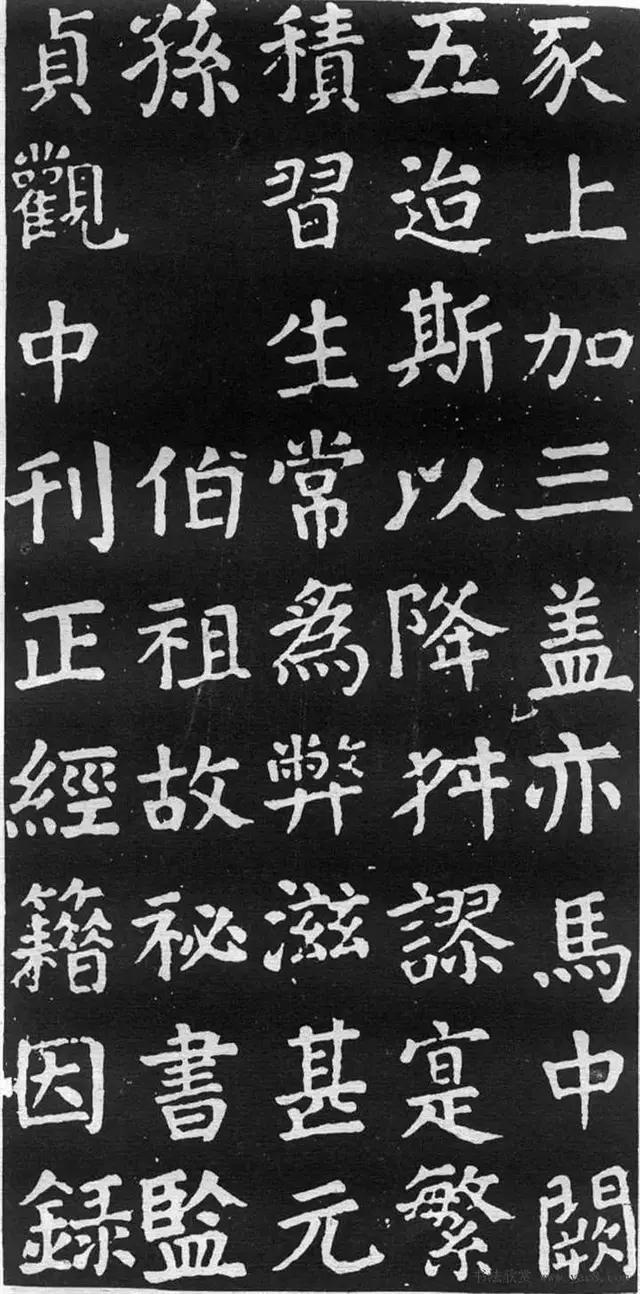 豕上加三盖亦馬中闕
五迨斯以降舛謬寔繁
積習生常為弊滋甚元
孫伯祖故祕書監
貞觀中刊正經籍因録
书法欣赏